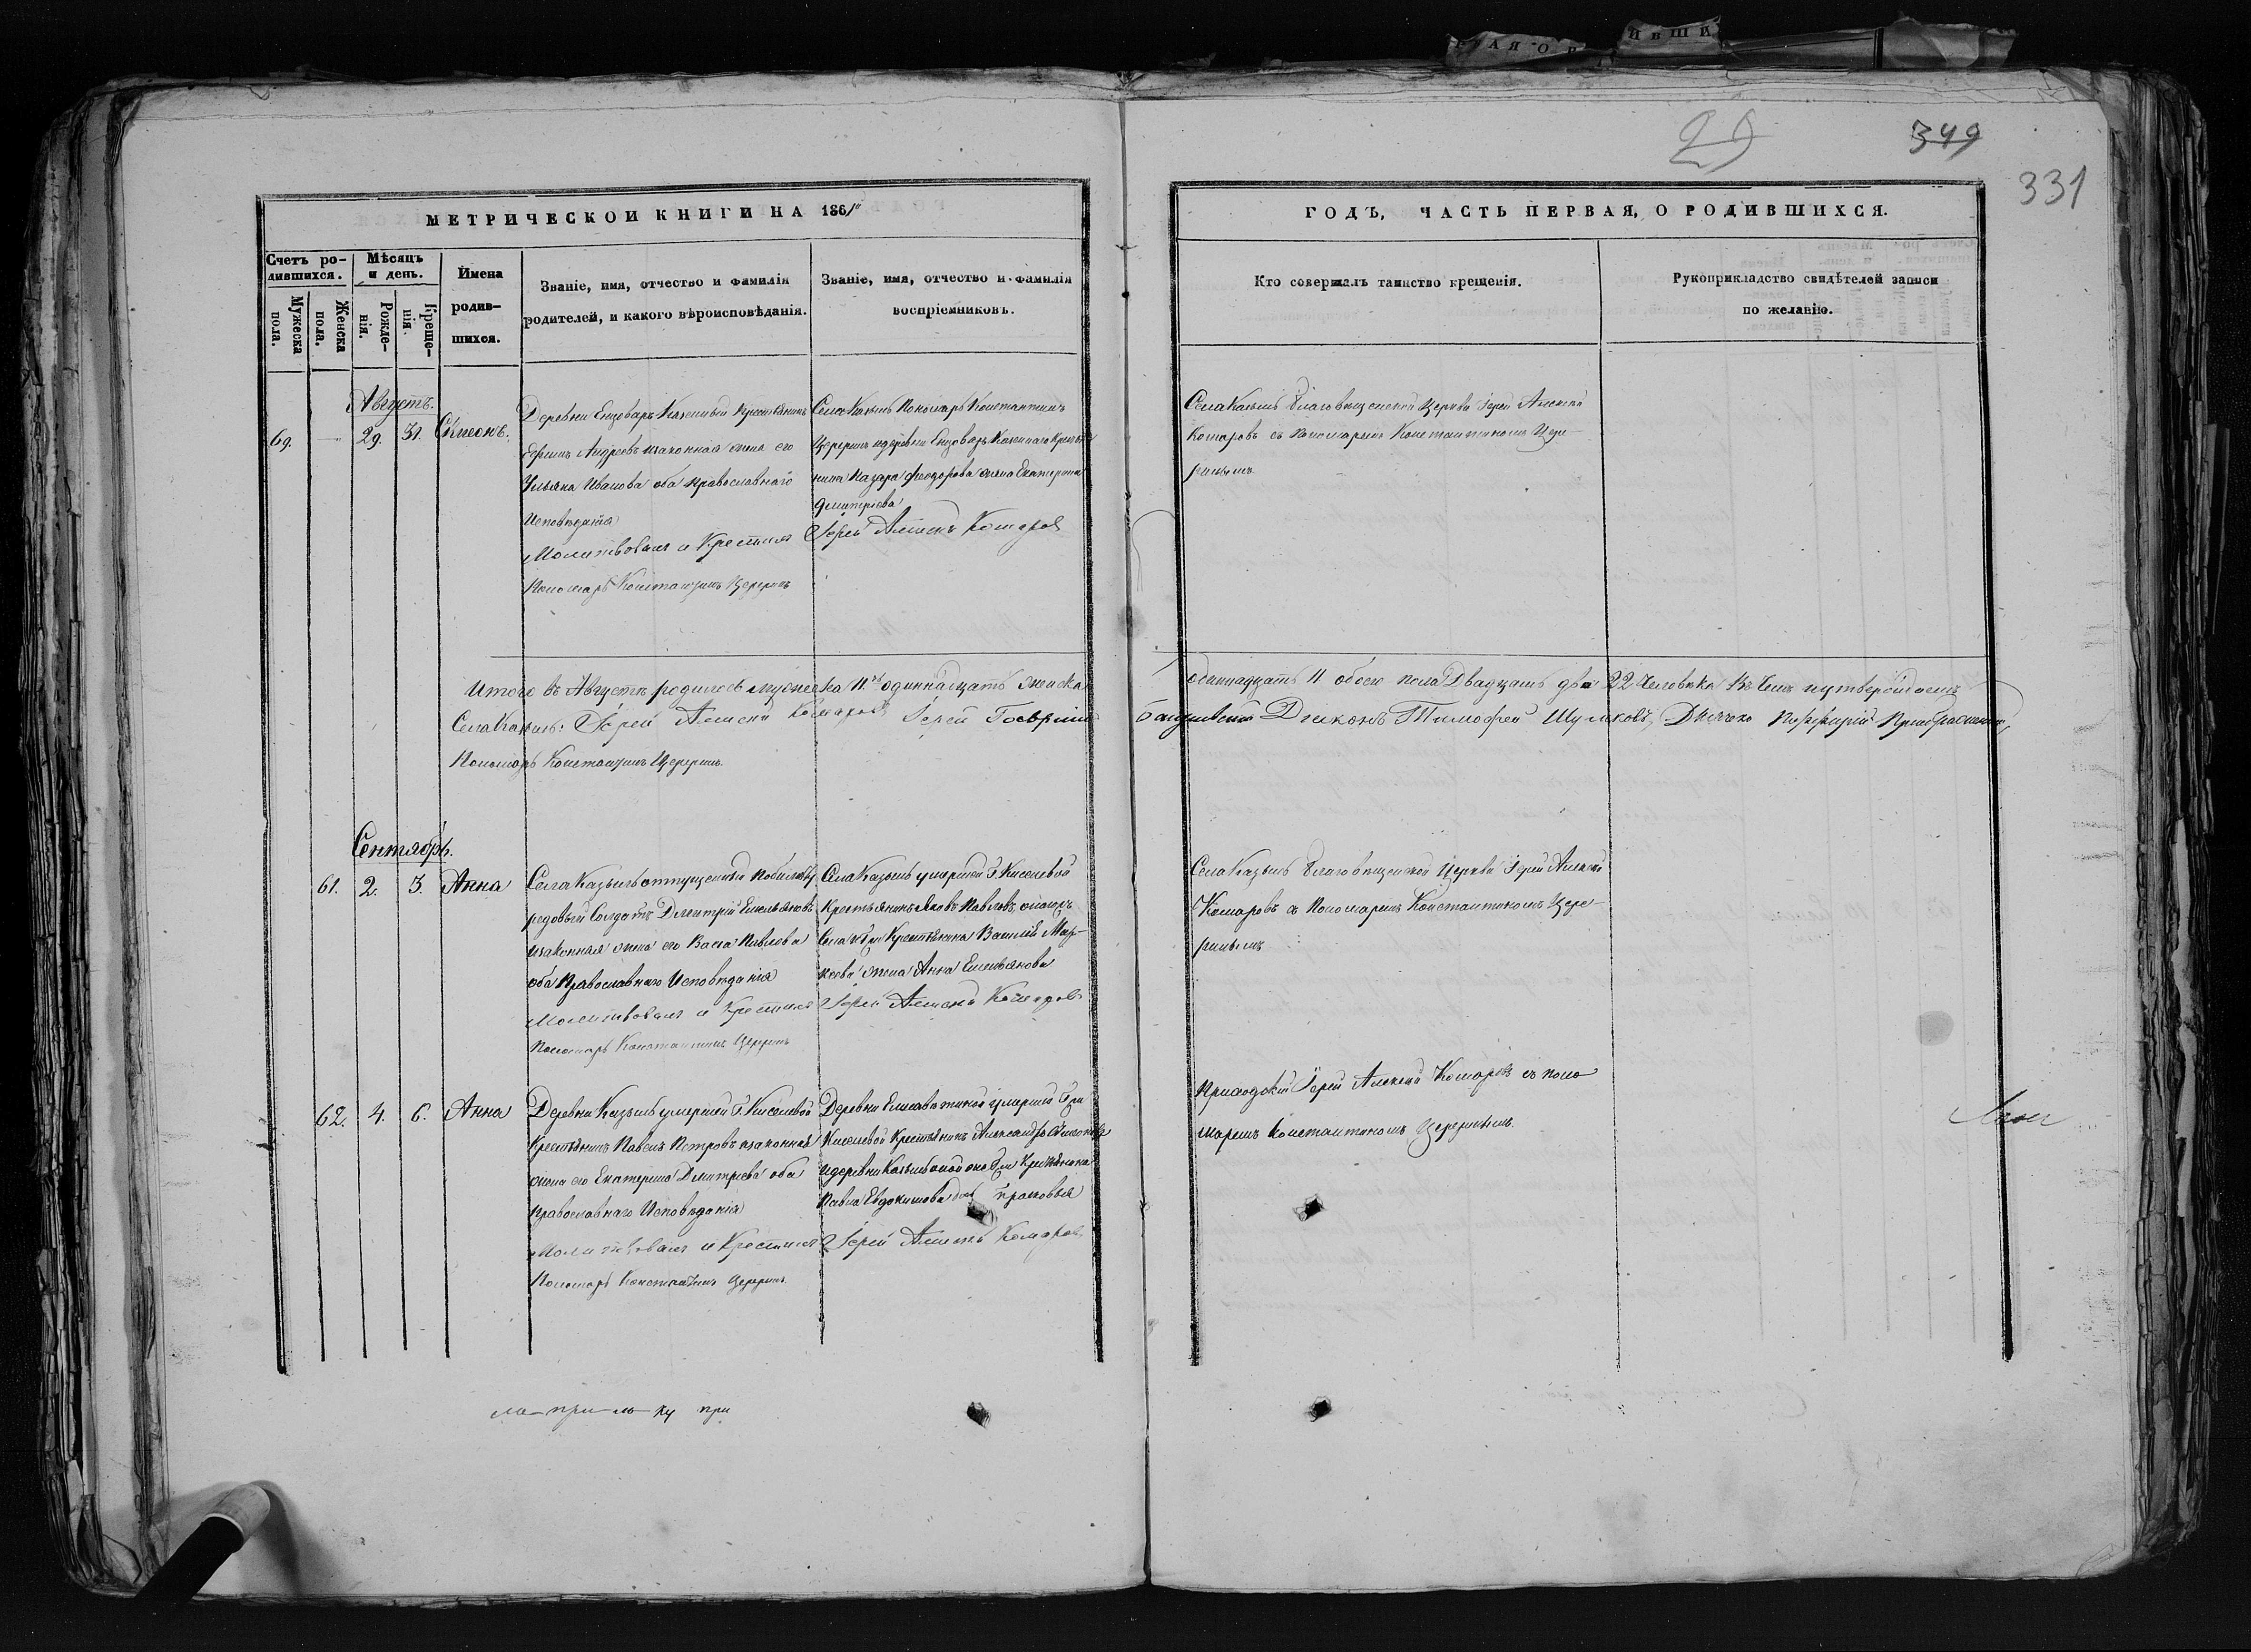 29
349
331
МЕТРИЧЕСКОЙ КНИГИ НА 1861й
Счетъ ро-
дившихся.
Мужеска
пола.
Женска
пола.
Мѣсяцъ
и день.
Рожде-
нія.
Креще-
нія.
Имена
родив-
шихся.
Званіе, имя, отчество и фамилія
родителей, и какого вѣроисповѣданія.
Званіе, имя, отчество и фамилія
воспріемниковъ.
ГОДЪ, ЧАСТЬ ПЕРВАЯ, О РОДИВШИХСЯ.
Кто совершалъ таинство крещенія.
Рукоприкладство свидѣтелей записи
по желанію.
Августъ.
69.
29.
31.
Сѵмеонъ.
Деревни Казенный Крестьянинъ
Ефимъ Андреевъ изаконная жена его
Ульяна Иванова оба православнаго
Исповѣданія
Молитвовалъ и Крестилъ
Пономарь Константинъ Цереринъ
Села Казыль Пономарь Константинъ
Цереринъ идеревни Казеннаго Крестья
нина Назара Феодорова жена Екатерина
Дмитріева
Іерей Алексѣй Комаровъ
Села Казыль Благовѣщенской Церкви Іерей Алексѣй
Комаровъ съ Пономаремъ Константиномъ Цере-
ринымъ
Итого въ Августѣ родилось мужеска 11ть одиннадцать женска
одиннадцать 11 обоего пола Двадцать два 22 Человѣка Въ чемъ иутверждаемъ
Села Казыль: Іерей Алексѣй Комаровъ Іерей Гавріилъ
Діаконъ Тимофей Шумковъ, Дьячекъ Порфирій Преображенскій,
Пономарь Константинъ Цереринъ.
Сентябрь.
61.
2.
3
Анна
Села Казыль отпущенный побилету
рядовый Солдатъ Дмитрій Емельяновъ
изаконная жена его Васса Павлова
оба Православнаго Исповѣданія
Молитвовалъ и Крестилъ
Пономарь Константинъ Цереринъ
Села Казыль умершей Г. Киселевой
Крестьянинъ Яковъ Павловъ, итогожъ
Села Крестьянина Василія Мар-
кеева жена Анна Емельянова
Іерей Алексѣй Комаровъ
Села Казыль Благовѣщенской Церкви Іерей Алексѣй
Комаровъ съ Пономаремъ Константиномъ Цере-
ринымъ
62.
4.
6.
Анна
Деревни Казыль умершей Г. Киселевой
Крестьянинъ Павелъ Петровъ изаконная
жена его Екатерина Дмитріева оба
Православнаго Исповѣданія
Молитвовалъ и Крестилъ
Пономарь Константинъ Цереринъ.
Деревни умершей Г-жи
Киселевой Крестьянинъ Александръ
идеревни Казыль Крестьянина
Павла Евдокимова Прасковья
Іерей Алексѣй Комаровъ
Приходскій Іерей Алексѣй Комаровъ съ Поно
маремъ Константиномъ Цереринымъ.